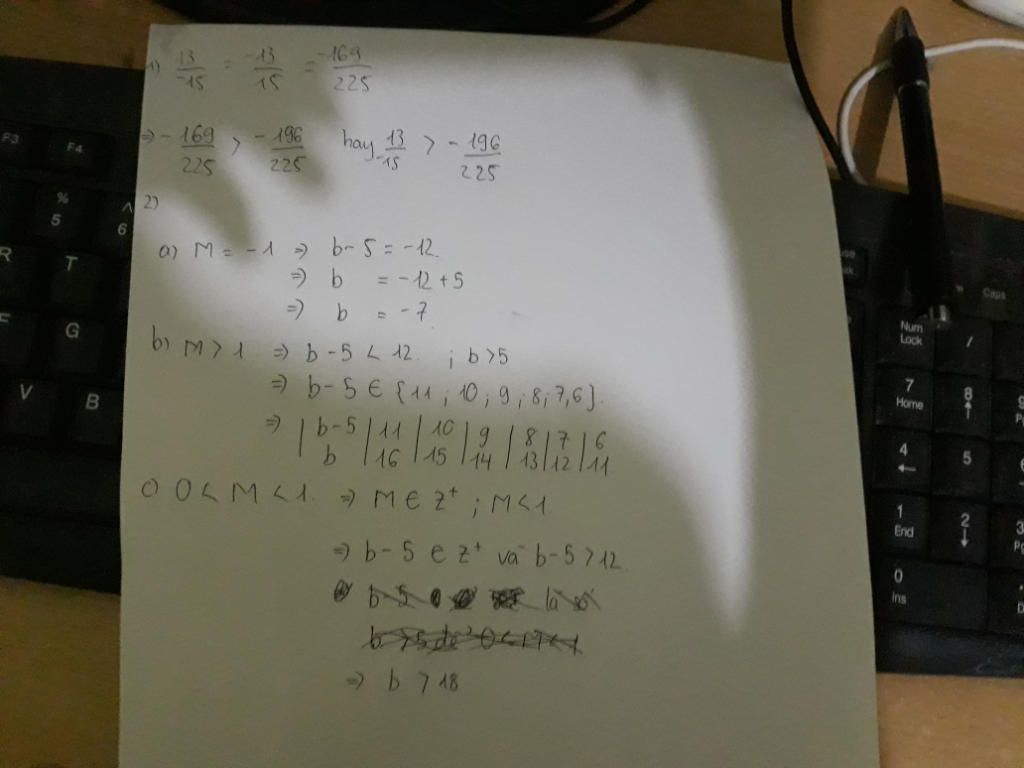 1) 13/-15 = -13/15 = -169/225
=> -169/225 > -196/225 hay 13/-15 > -196/225
2)
a) M = -1 => b-5 = -12.
=> b = -12+5
=> b = -7
b) M > 1 => b-5 < 12. ; b > 5
=> b-5 ∈ {11; 10; 9; 8; 7, 6}.
=> | b-5 | 11 | 10 | 9 | 8 | 7 | 6
b | 16 | 15 | 14 | 13 | 12 | 11
c) 0 < M < 1. => M ∈ Z⁺ ; M < 1
=> b-5 ∈ Z⁺ và b-5 > 12.
=> b > 18
F3
F4
%
5
^
6
R
T
F
G
V
B
Num
Lock
/
7
Home
8
↑
4
←
5
1
End
2
↓
0
Ins
Caps